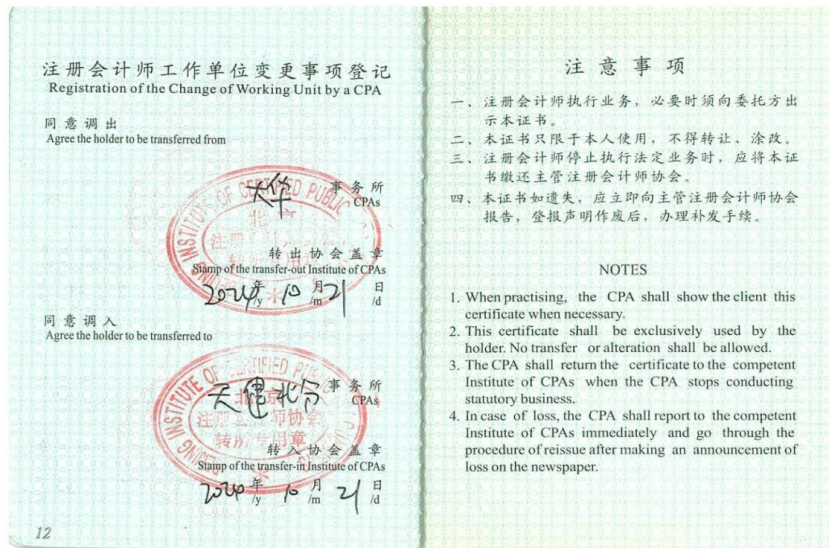 注册会计师工作单位变更事项登记
Registration of the Change of Working Unit by a CPA
同意调出
Agree the holder to be transferred from
大华 事务所
CPAs
转出协会盖章
Stamp of the transfer-out Institute of CPAs
2024年 10月 21日
/y /m /d
同意调入
Agree the holder to be transferred to
天健北分 事务所
CPAs
转入协会盖章
Stamp of the transfer-in Institute of CPAs
2024年 10月 21日
/y /m /d
12
注意事项
一、注册会计师执行业务，必要时须向委托方出
示本证书。
二、本证书只限于本人使用，不得转让、涂改。
三、注册会计师停止执行法定业务时，应将本证
书缴还主管注册会计师协会。
四、本证书如遗失，应立即向主管注册会计师协会
报告，登报声明作废后，办理补发手续。
NOTES
1. When practising, the CPA shall show the client this
certificate when necessary.
2. This certificate shall be exclusively used by the
holder. No transfer or alteration shall be allowed.
3. The CPA shall return the certificate to the competent
Institute of CPAs when the CPA stops conducting
statutory business.
4. In case of loss, the CPA shall report to the competent
Institute of CPAs immediately and go through the
procedure of reissue after making an announcement of
loss on the newspaper.